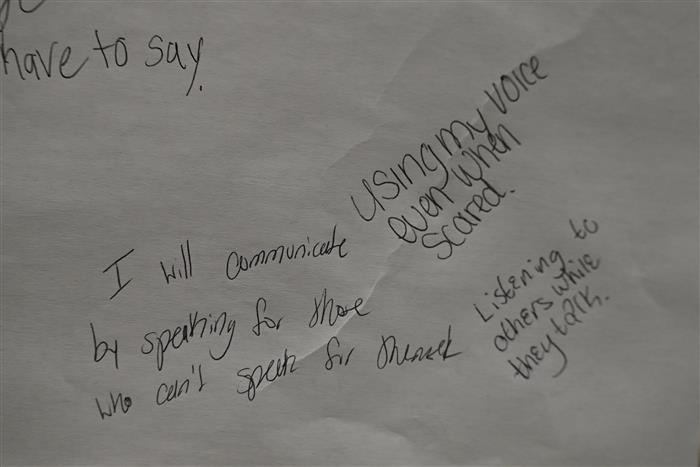 have to say.
using my voice
even when
scared.
I will communicate
by speaking for those
who can't speak for themself
Listening to
others while
they talk.